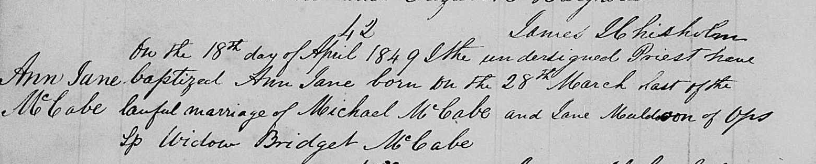 42
James J Chisholm
On the 18th day of April 1849 I the undersigned Priest have
Ann Jane baptized Ann Jane born on the 28th March last of the
McCabe lawful marriage of Michael McCabe and Jane Muldoon of Ops
Sp Widow Bridget McCabe